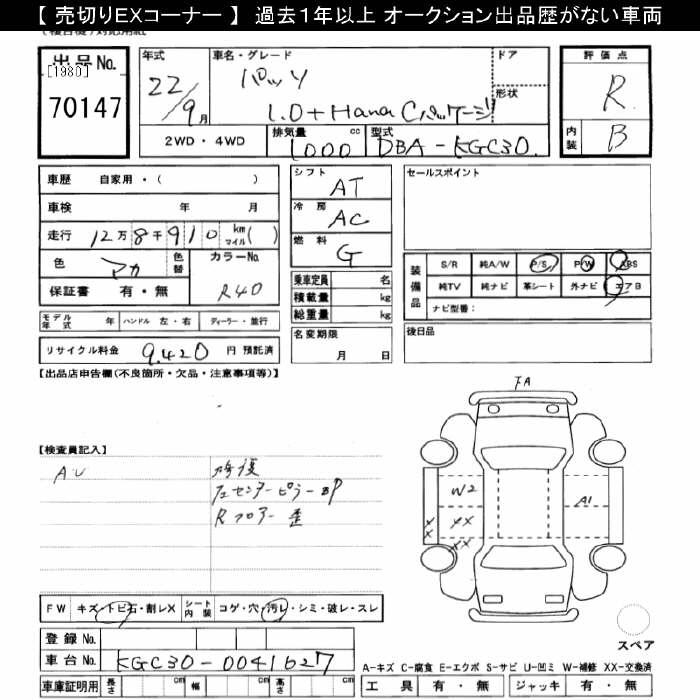 【 売切りEXコーナー 】 過去１年以上 オークション出品歴がない車両
出 品 No.
[1980]
70147
年式
22/9月
車名・グレード
パッソ
1.0+Hana Cパッケージ
ドア
形状
評 価 点
R
内装
B
2WD ・ 4WD
排気量
1000 cc
型式
DBA-KGC30
車歴 自家用・( )
車検 年 月
走行 12万 8千 910 km マイル( )
色 アカ
色替
カラーNo.
R40
保証書 有・無
シフト
AT
冷房
AC
燃料
G
セールスポイント
乗車定員 名
積載量 kg
総重量 kg
装備品
S/R 純A/W P/S P/W ABS
純TV 純ナビ 革シート 外ナビ エアB
ナビ型番：
モデル年式 年 ハンドル 左・右 ディーラー・並行
名変期限
月 日
後日品
リサイクル料金 9,420 円 預託済
【出品店申告欄(不良箇所・欠品・注意事項等)】
【検査員記入】
AU
修復
センターピラー
Rフロアー歪
FA
W2
A1
XX
XX
XX
FW キズ・トビ石・割レX
シート内装 コゲ・穴・汚レ・シミ・破レ・スレ
登録 No.
車台 No. KGC30-0041627
スペア
A-キズ C-腐食 E-エクボ S-サビ U-凹ミ W-補修 XX-交換済
車庫証明用 長さ cm 幅 cm 高さ cm
工具 有・無 ジャッキ 有・無